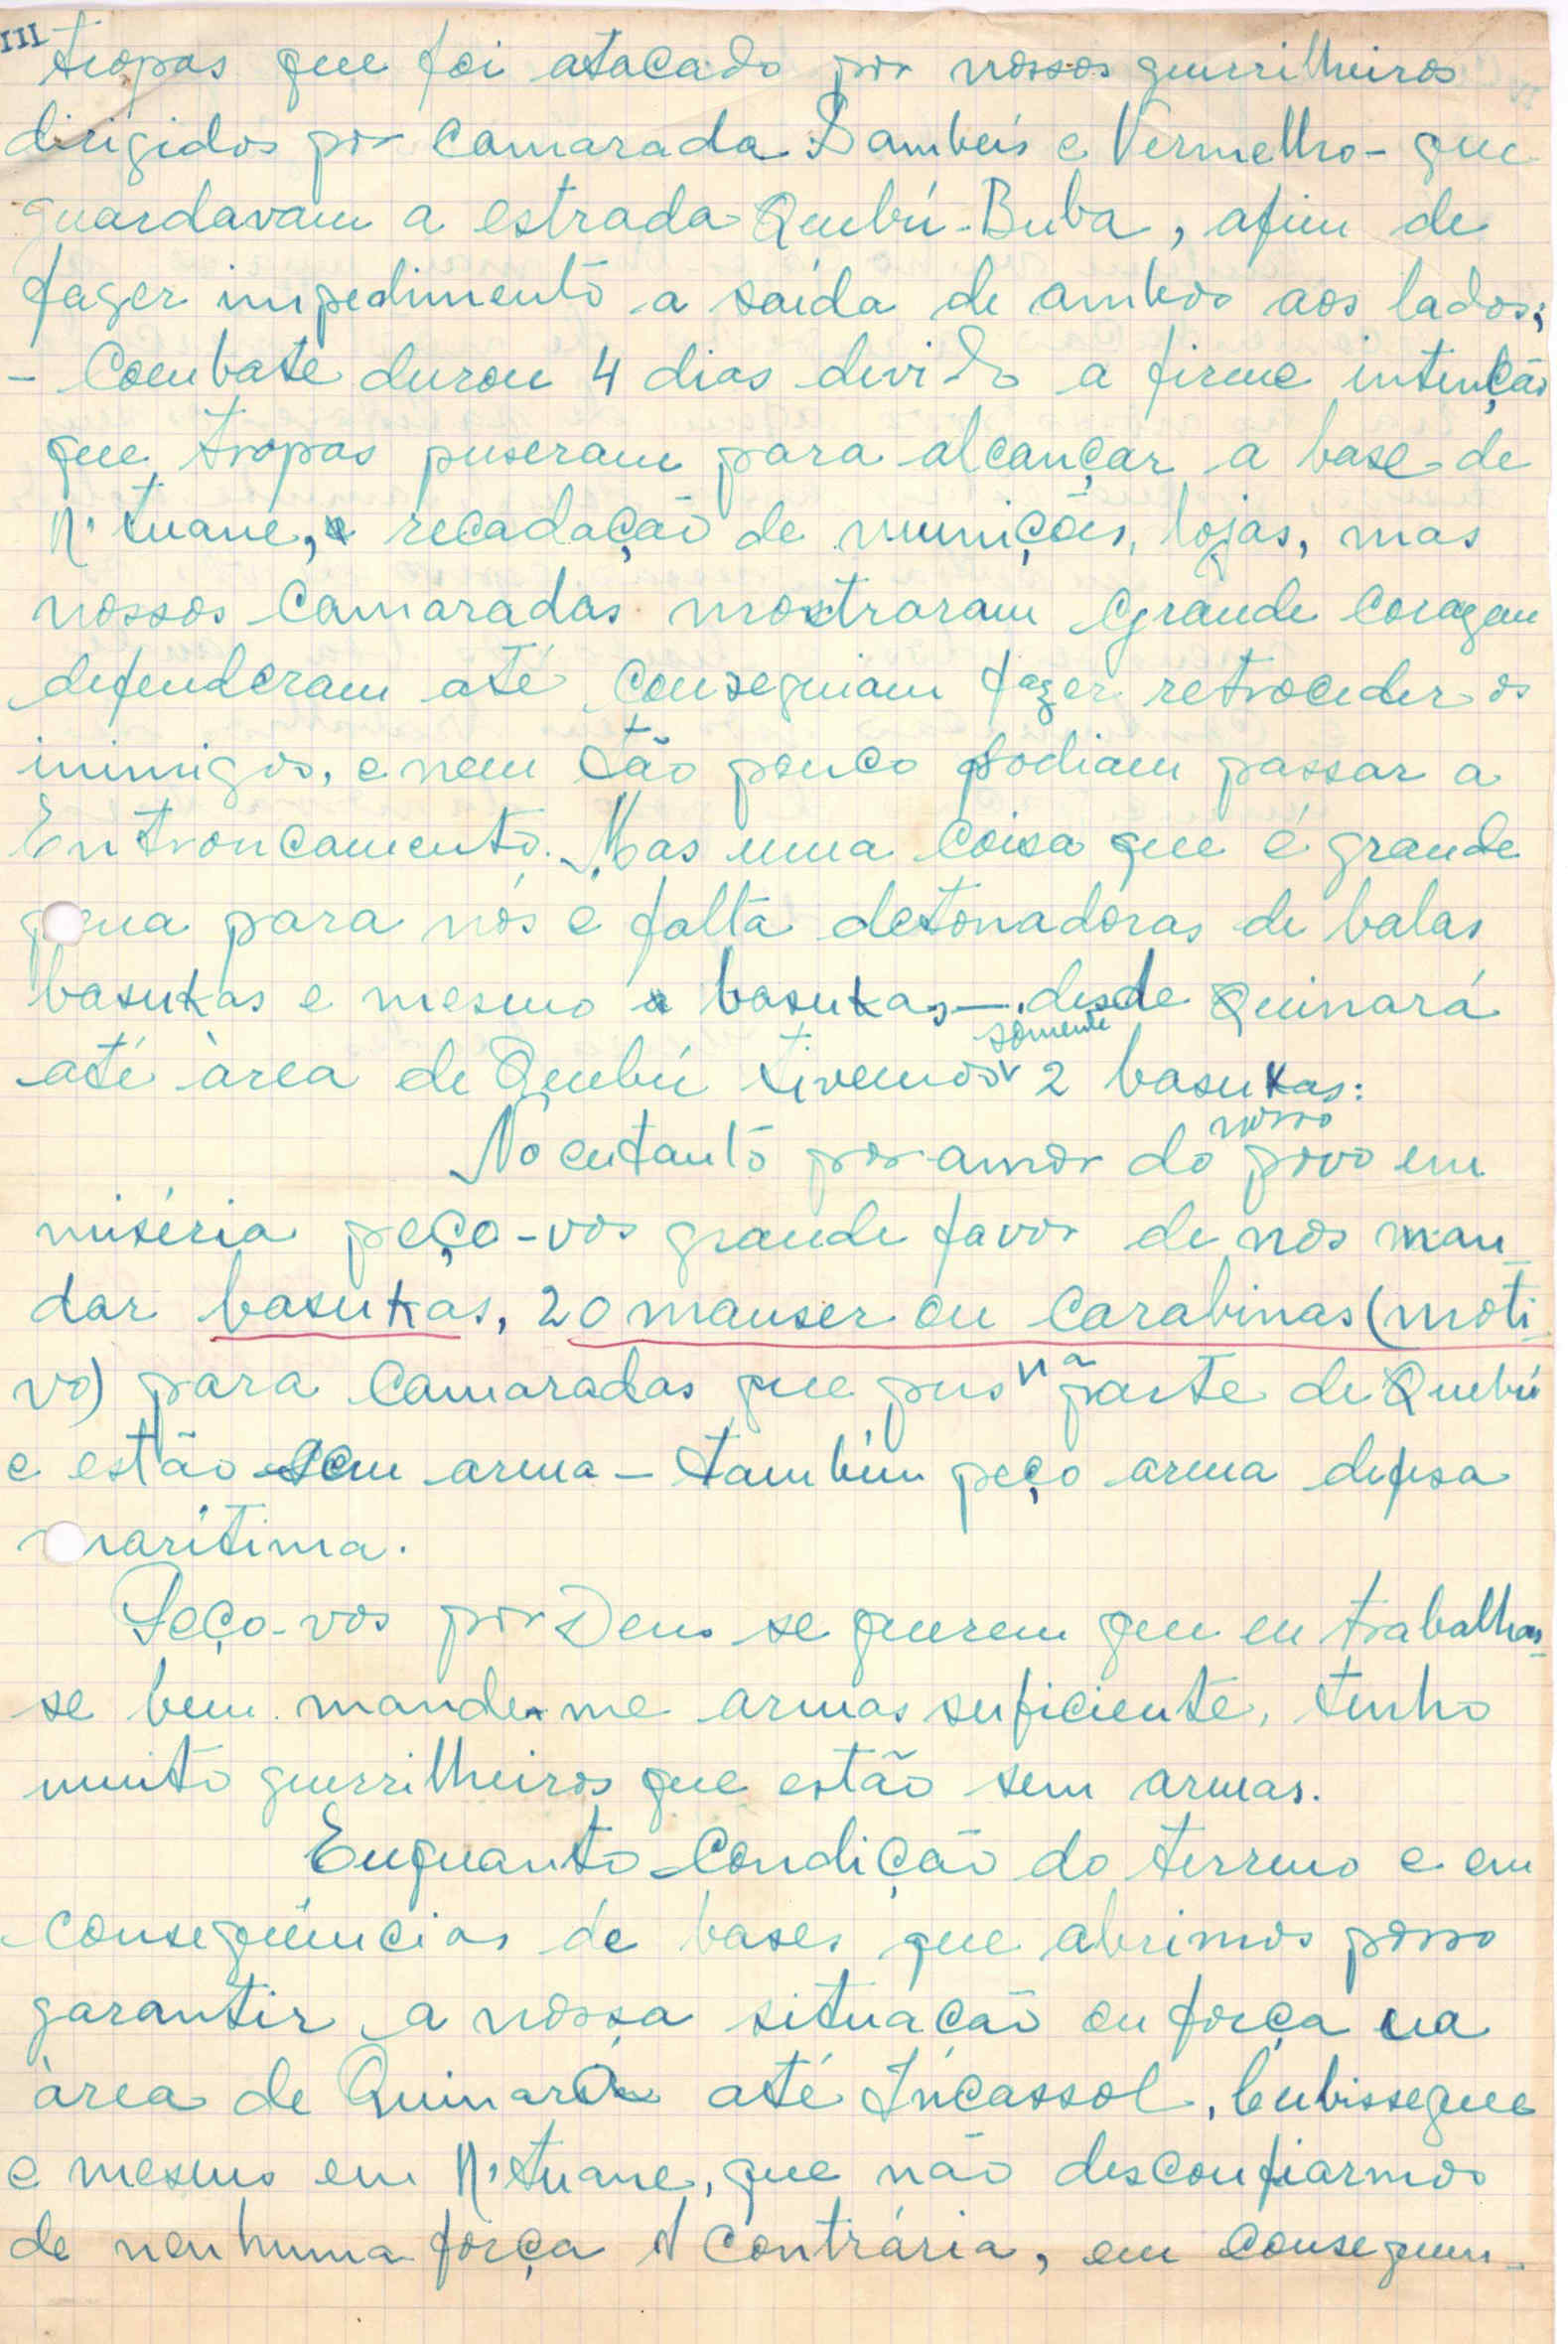 III
tropas que foi atacado por nossos guerrilheiros
dirigidos por camarada Sambeis e Vermelho - que
guardavam a estrada Quebú-Buba, afim de
fazer impedimento a saída de ambos aos lados;
- Combate durou 4 dias divido a firme intenção
que tropas puseram para alcançar a base de
N'tuane, recadação de munições, lojas, mas
nossos camaradas mostraram grande coragem
defenderam até conseguiam fazer retroceder os
inimigos, e nem tão pouco podiam passar a
Entroncamento. Mas uma coisa que é grande
pena para nós é falta detonadoras de balas
basukas e mesmo basukas, — desde Quinará
até àrea de Quebú tivemos somente 2 basukas:
No entanto por amor do nosso povo em
miséria peço-vos grande favor de nos man-
dar basukas, 20 mauser ou Carabinas (moti-
vo) para camaradas que pus na parte de Quebú
e estão sem arma - também peço arma defesa
marítima.
Peço-vos por Deus se querem que eu trabalhas-
se bem mande-me armas suficiente, tenho
muito guerrilheiros que estão sem armas.
Enquanto Condição do terreno e em
conseqüências de bases que abrimos posso
garantir a nossa situacão ou força na
àrea de Quinará até Incassol, Cubisseque
e mesmo em N'tuane, que não desconfiarmos
de nenhuma força contrária, em consequen-